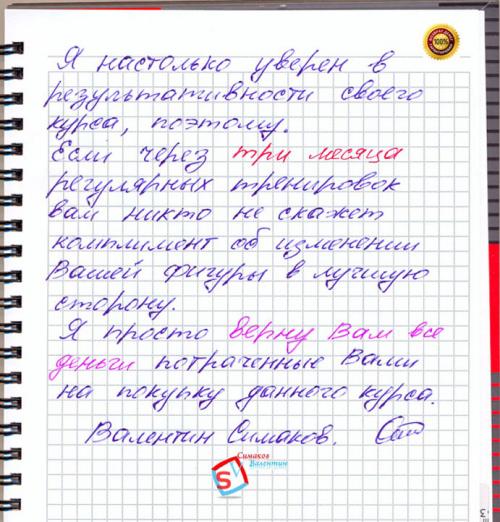 100%
Я настолько уверен в
результативности своего
курса, поэтому.
Если через три месяца
регулярных тренировок
вам никто не скажет
комплимент об изменении
Вашей фигуры в лучшую
сторону.
Я просто верну Вам все
деньги потраченные Вами
на покупку данного курса.
Валентин Симаков.
Симаков
Валентин
SV